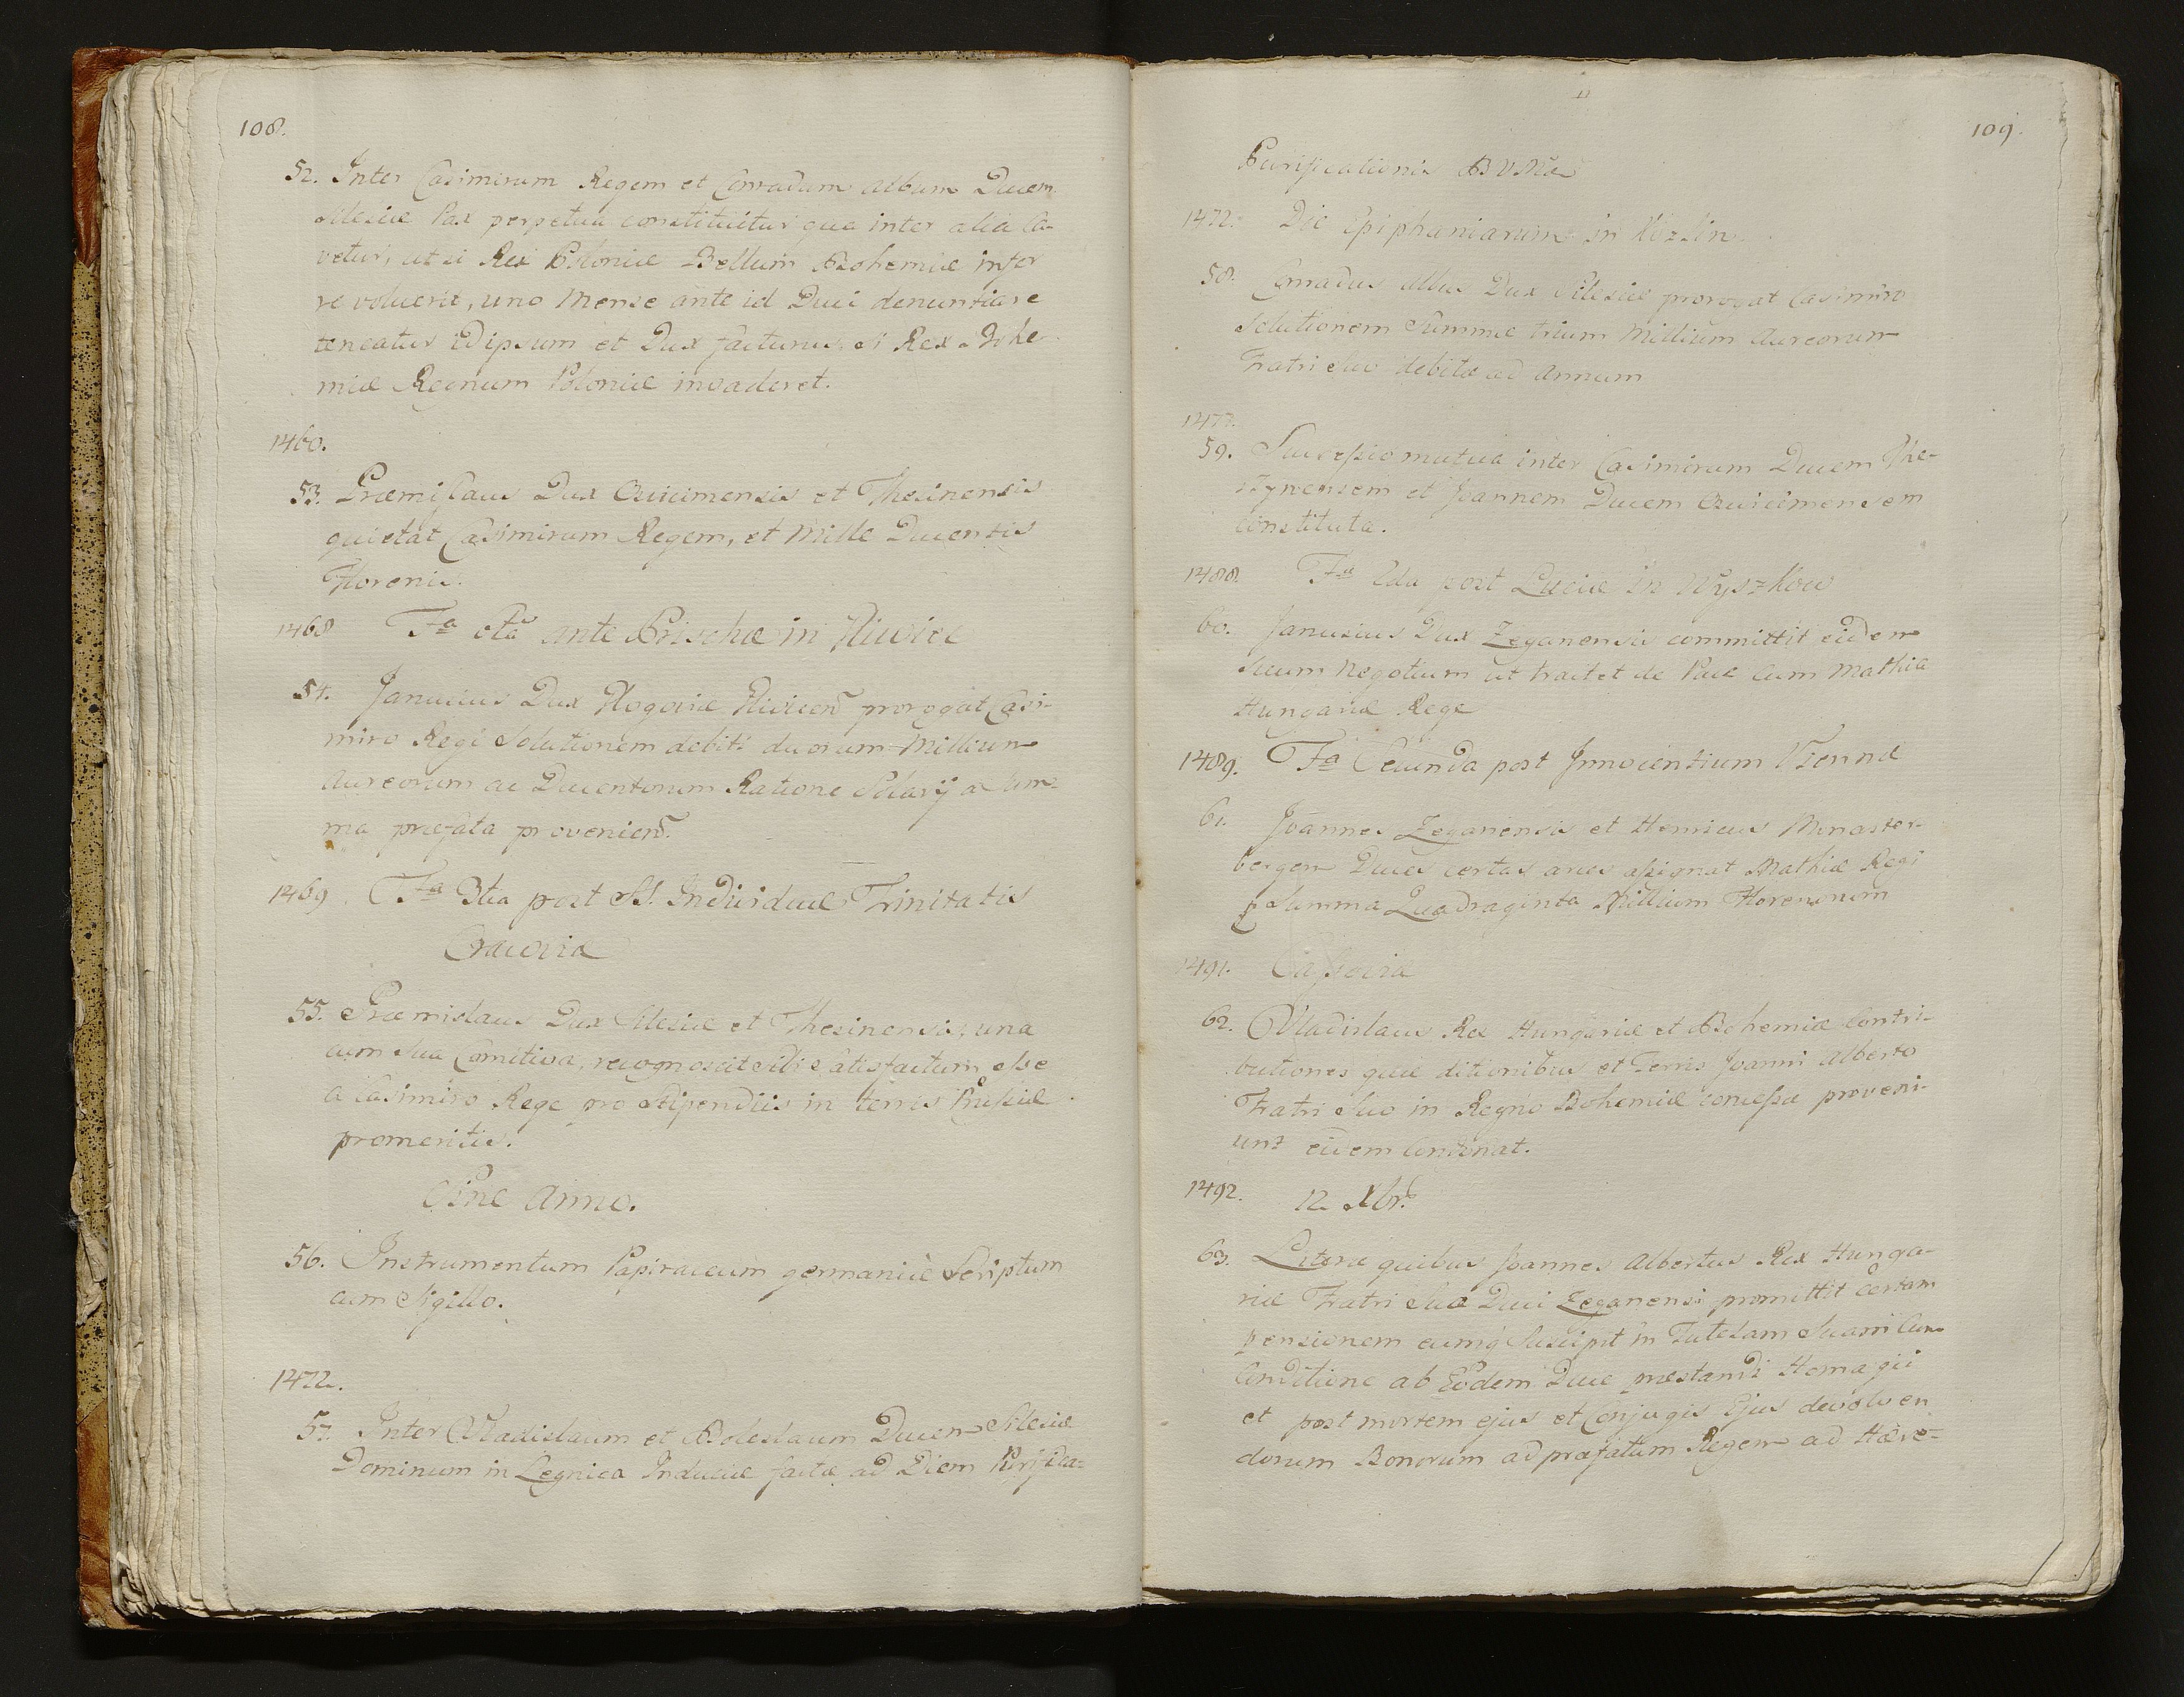 108.
52. Inter Casimirum Regem et Conradum album Ducem
Silesiæ Pax perpetua constituitur qua inter alia Ca-
vetur, ut si Rex Poloniæ Bellum Bohemiæ infer
re voluerit, uno Mense ante id Duci denuntiare
teneatur idipsum et Dux facturus si Rex Bohe-
miæ Regnum Poloniæ invaderet.
1460.
53. Præmislaus Dux Osviecimensis et Thesinensis
quietat Casimirum Regem, et Mille Ducentis
Florenis.
1468 Fa 6ta ante Prischæ in
54. Janusius Dux Glogoviæ prorogat Casi-
miro Regi Solutionem debiti duorum Millium
Aureorum ac Ducentorum Ratione Salarÿ a Sum-
ma præfata provenien.
1469. Fa 3tia post SS. Individuæ Trinitatis
Cracoviæ
55. Præmislaus Dux Silesiæ et Thesinensis, una
cum Sua Comitiva, recognoscit Sibi Satisfactum esse
a Casimiro Rege pro Stipendiis in terris Prussiæ
promeritis.
Sine Anno.
56. Instrumentum Papiraceum germanicè Scriptum
cum Sigillo.
1472.
57. Inter Vladislaum et Boleslaum Ducem Silesiæ
Dominum in Legnica Induciæ factæ ad Diem Purifica-
109.
Purificationis B V Mæ
1472. Die Epiphaniarum in Kozlin
58. Conradus Albus Dux Silesiæ prorogat Casimiro
Solutionem Summæ trium Millium Aureorum
Fratri Suo debitæ ad Annum
1477.
59. Successio mutua inter Casimirum Ducem The-
szynensem et Joannem Ducem Osviecimensem
constituta.
1488. Fa 2da post Luciæ in Wyszkow
60. Janusius Dux Zeganensis committit eidem
Suum Negotium ut tractet de Pace Cum Mathia
Hungariæ Rege
1489. Fa Secunda post Innocentium Viennæ
61. Joannes Zeganensis et Henricus Monaster-
bergen Duces certas arces assignat Mathiæ Regi
Summa Quadraginta Millium Florenorum
1491. Cassovia
62. Vladislaus Rex Hungariæ et Bohemiæ Contri-
butiones quæ ditionibus et Terris Joanni Alberto
Fratri Suo in Regno Bohemiæ concessa proveni-
unt eidem Condonat.
1492. 12 Xbr.
63. Literæ quibus Joannes Albertus Rex Hunga-
riæ Fratri Suo Duci Zeganensi promittit Certam
pensionem eumq Suscipit in Tutelam Suam Cum
Conditione ab Eodem Duce præstandi Homagii
et post mortem ejus et Conjugis Ejus devolven
dorum Bonorum ad præfatum Regem ad Hære-